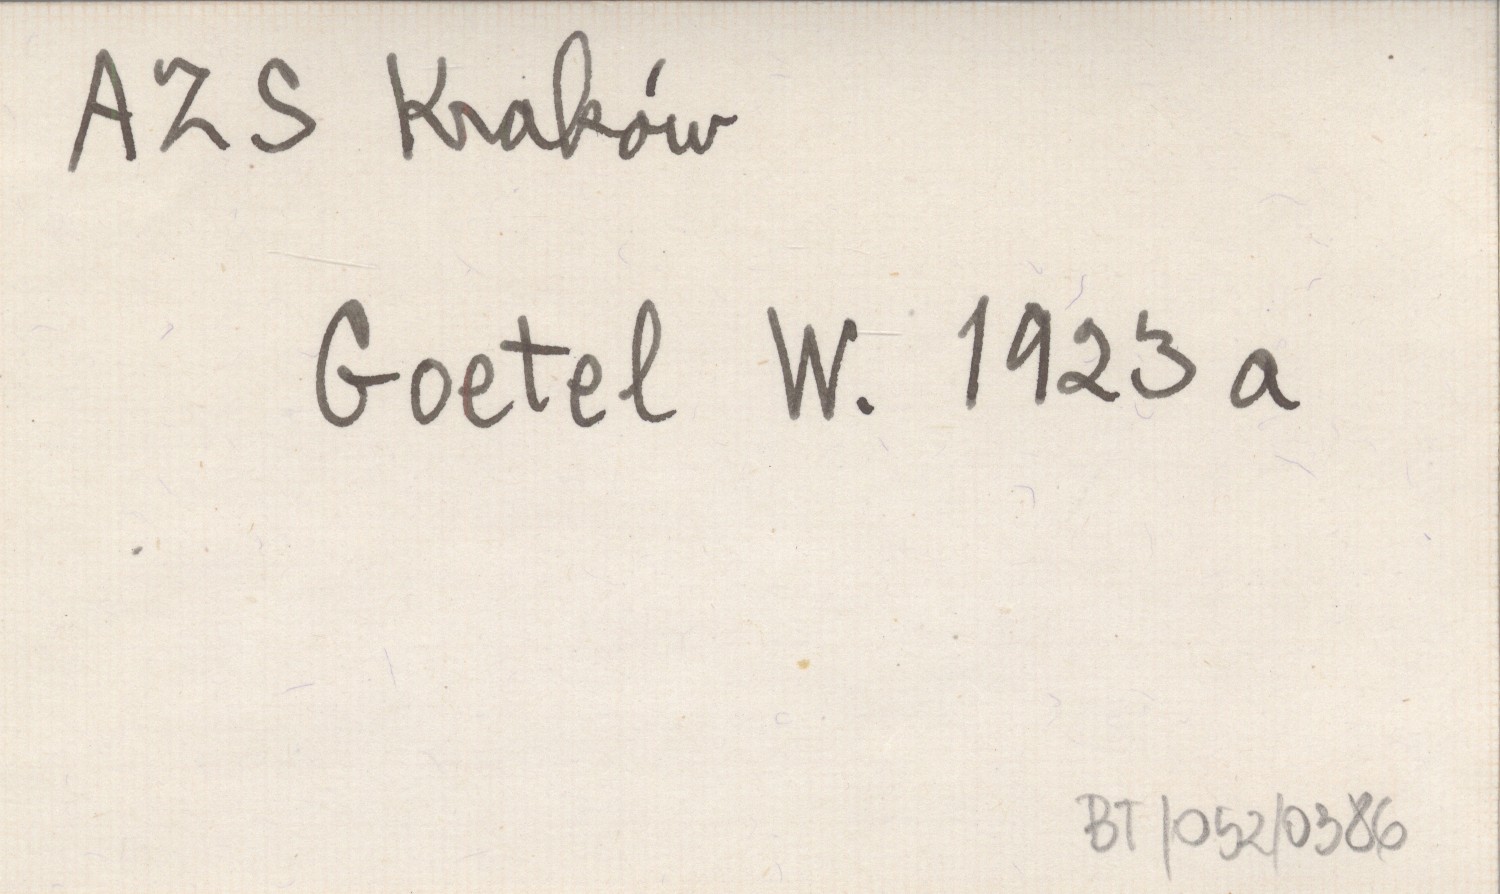 AZS Kraków
Goetel W. 1923 a
BT/052/0386